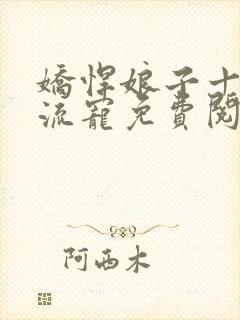 嬌悍娘子十
流寵免費閱
阿西木